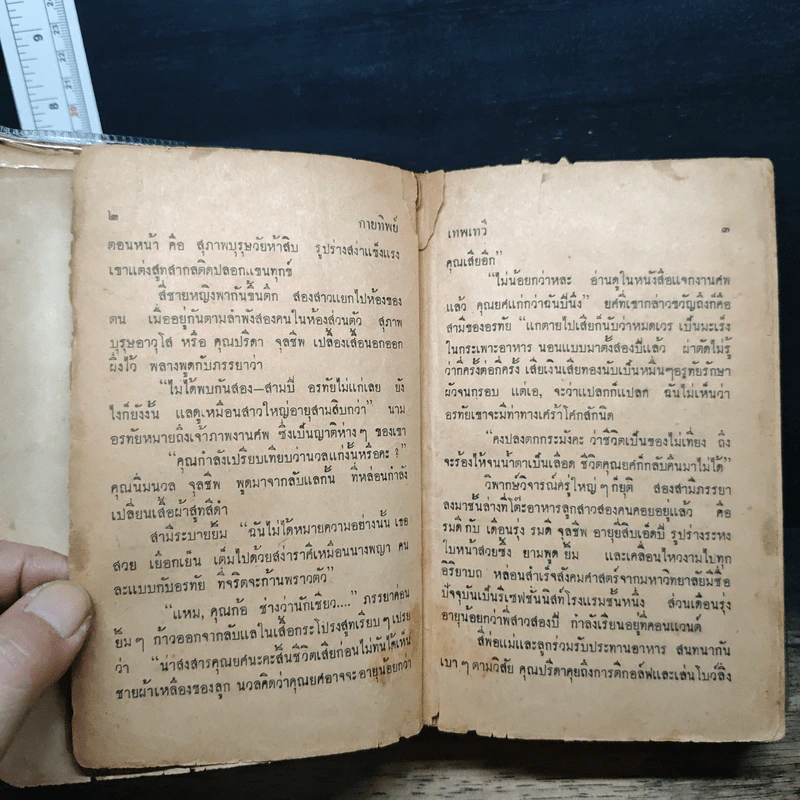 9
8
23
22
21
20
๒
กายทิพย์
ตอนหน้า คือ สุภาพบุรุษวัยห้าสิบ รูปร่างสง่าแข็งแรง
เขาแต่งสูทสากลติดปลอกแขนทุกข์
สี่ชายหญิงพากันขึ้นตึก สองสาวแยกไปห้องของ
ตน เมื่ออยู่กันตามลำพังสองคนในห้องส่วนตัว สุภาพ
บุรุษอาวุโส หรือ คุณปรีดา จุลชีพ เปลื้องเสื้อนอกออก
ผึ่งไว้ พลางพูดกับภรรยาว่า
“ไม่ได้พบกันสอง—สามปี อรทัยไม่แก่เลย ยัง
ไงก็ยังงั้น แลดูเหมือนสาวใหญ่อายุสามสิบกว่า” นาม
อรทัยหมายถึงเจ้าภาพงานศพ ซึ่งเป็นญาติห่างๆ ของเขา
“คุณกำลังเปรียบเทียบว่านวลแก่งั้นหรือคะ ?”
คุณนิ่มนวล จุลชีพ พูดมาจากลับแลกั้น ที่หล่อนกำลัง
เปลี่ยนเสื้อผ้าสูทสีดำ
สามีระบายยิ้ม “ฉันไม่ได้หมายความอย่างนั้น เธอ
สวย เยือกเย็น เต็มไปด้วยสง่าราศีเหมือนนางพญา คน
ละแบบกับอรทัย ที่จริตจะก้านพราวตัว”
“แหม, คุณก้อ ช่างว่านักเชียว....” ภรรยาค่อน
ยิ้มๆ ก้าวออกจากลับแลในเสื้อกระโปรงสูทเรียบๆ เปรย
ว่า “น่าสงสารคุณยศนะคะสิ้นชีวิตเสียก่อนไม่ทันได้เห็น
ชายผ้าเหลืองของลูก นวลคิดว่าคุณยศอาจจะอายุน้อยกว่า
เทพเทวี
๓
คุณเสียอีก”
“ไม่น้อยกว่าหละ อ่านดูในหนังสือแจกงานศพ
แล้ว คุณยศแก่กว่าฉันปีนึง” ยศที่เขากล่าวขวัญถึงก็คือ
สามีของอรทัย “แกตายไปเสียก็นับว่าหมดเวร เป็นมะเร็ง
ในกระเพาะอาหาร นอนแบบมาตั้งสองปีแล้ว ผ่าตัดไม่รู้
ว่ากี่ครั้งต่อกี่ครั้ง เสียเงินเสียทองนับเป็นหมื่นๆอรทัยรักษา
ผัวจนกรอบ แต่เอ, จะว่าแปลกก็แปลก ฉันไม่เห็นว่า
อรทัยเขาจะมีท่าทางเศร้าโศกสักนิด
“คงปลงตกกระมังคะ ว่าชีวิตเป็นของไม่เที่ยง ถึง
จะร้องไห้จนน้ำตาเป็นเลือด ชีวิตคุณยศก็กลับคืนมาไม่ได้”
วิพากษ์วิจารณ์ครู่ใหญ่ๆก็ยุติ สองสามีภรรยา
ลงมาชั้นล่างที่โต๊ะอาหารลูกสาวสองคนคอยอยู่แล้ว คือ
รมดี กับ เดือนรุ่ง รมดี จุลชีพ อายุยี่สิบเอ็ดปี รูปร่างระหง
ใบหน้าสวยซึ้ง ยามพูด ยิ้ม และเคลื่อนไหวงามไปทุก
อิริยาบถ หล่อนสำเร็จสังคมศาสตร์จากมหาวิทยาลัยมีชื่อ
ปัจจุบันเป็นรีเซฟชั่นนิสท์โรงแรมชั้นหนึ่ง ส่วนเดือนรุ่ง
อายุน้อยกว่าพี่สาวสองปี กำลังเรียนอยู่ที่คอนแวนต์
สี่พ่อแม่และลูกร่วมรับประทานอาหาร สนทนากัน
เบาๆตามวิสัย คุณปรีดาคุยถึงการตีกอล์ฟและเล่นโบว์ลิ่ง